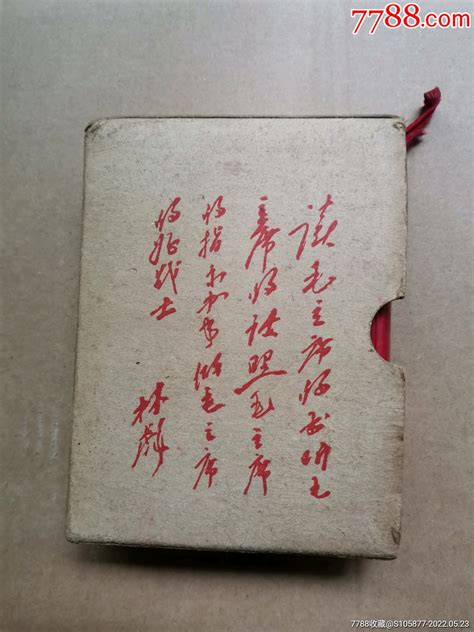 7788.com
读毛主席的书听毛
主席的话照毛主席
的指示办事做毛主席
的好战士
林彪
7788收藏@S105877-2022.05.23